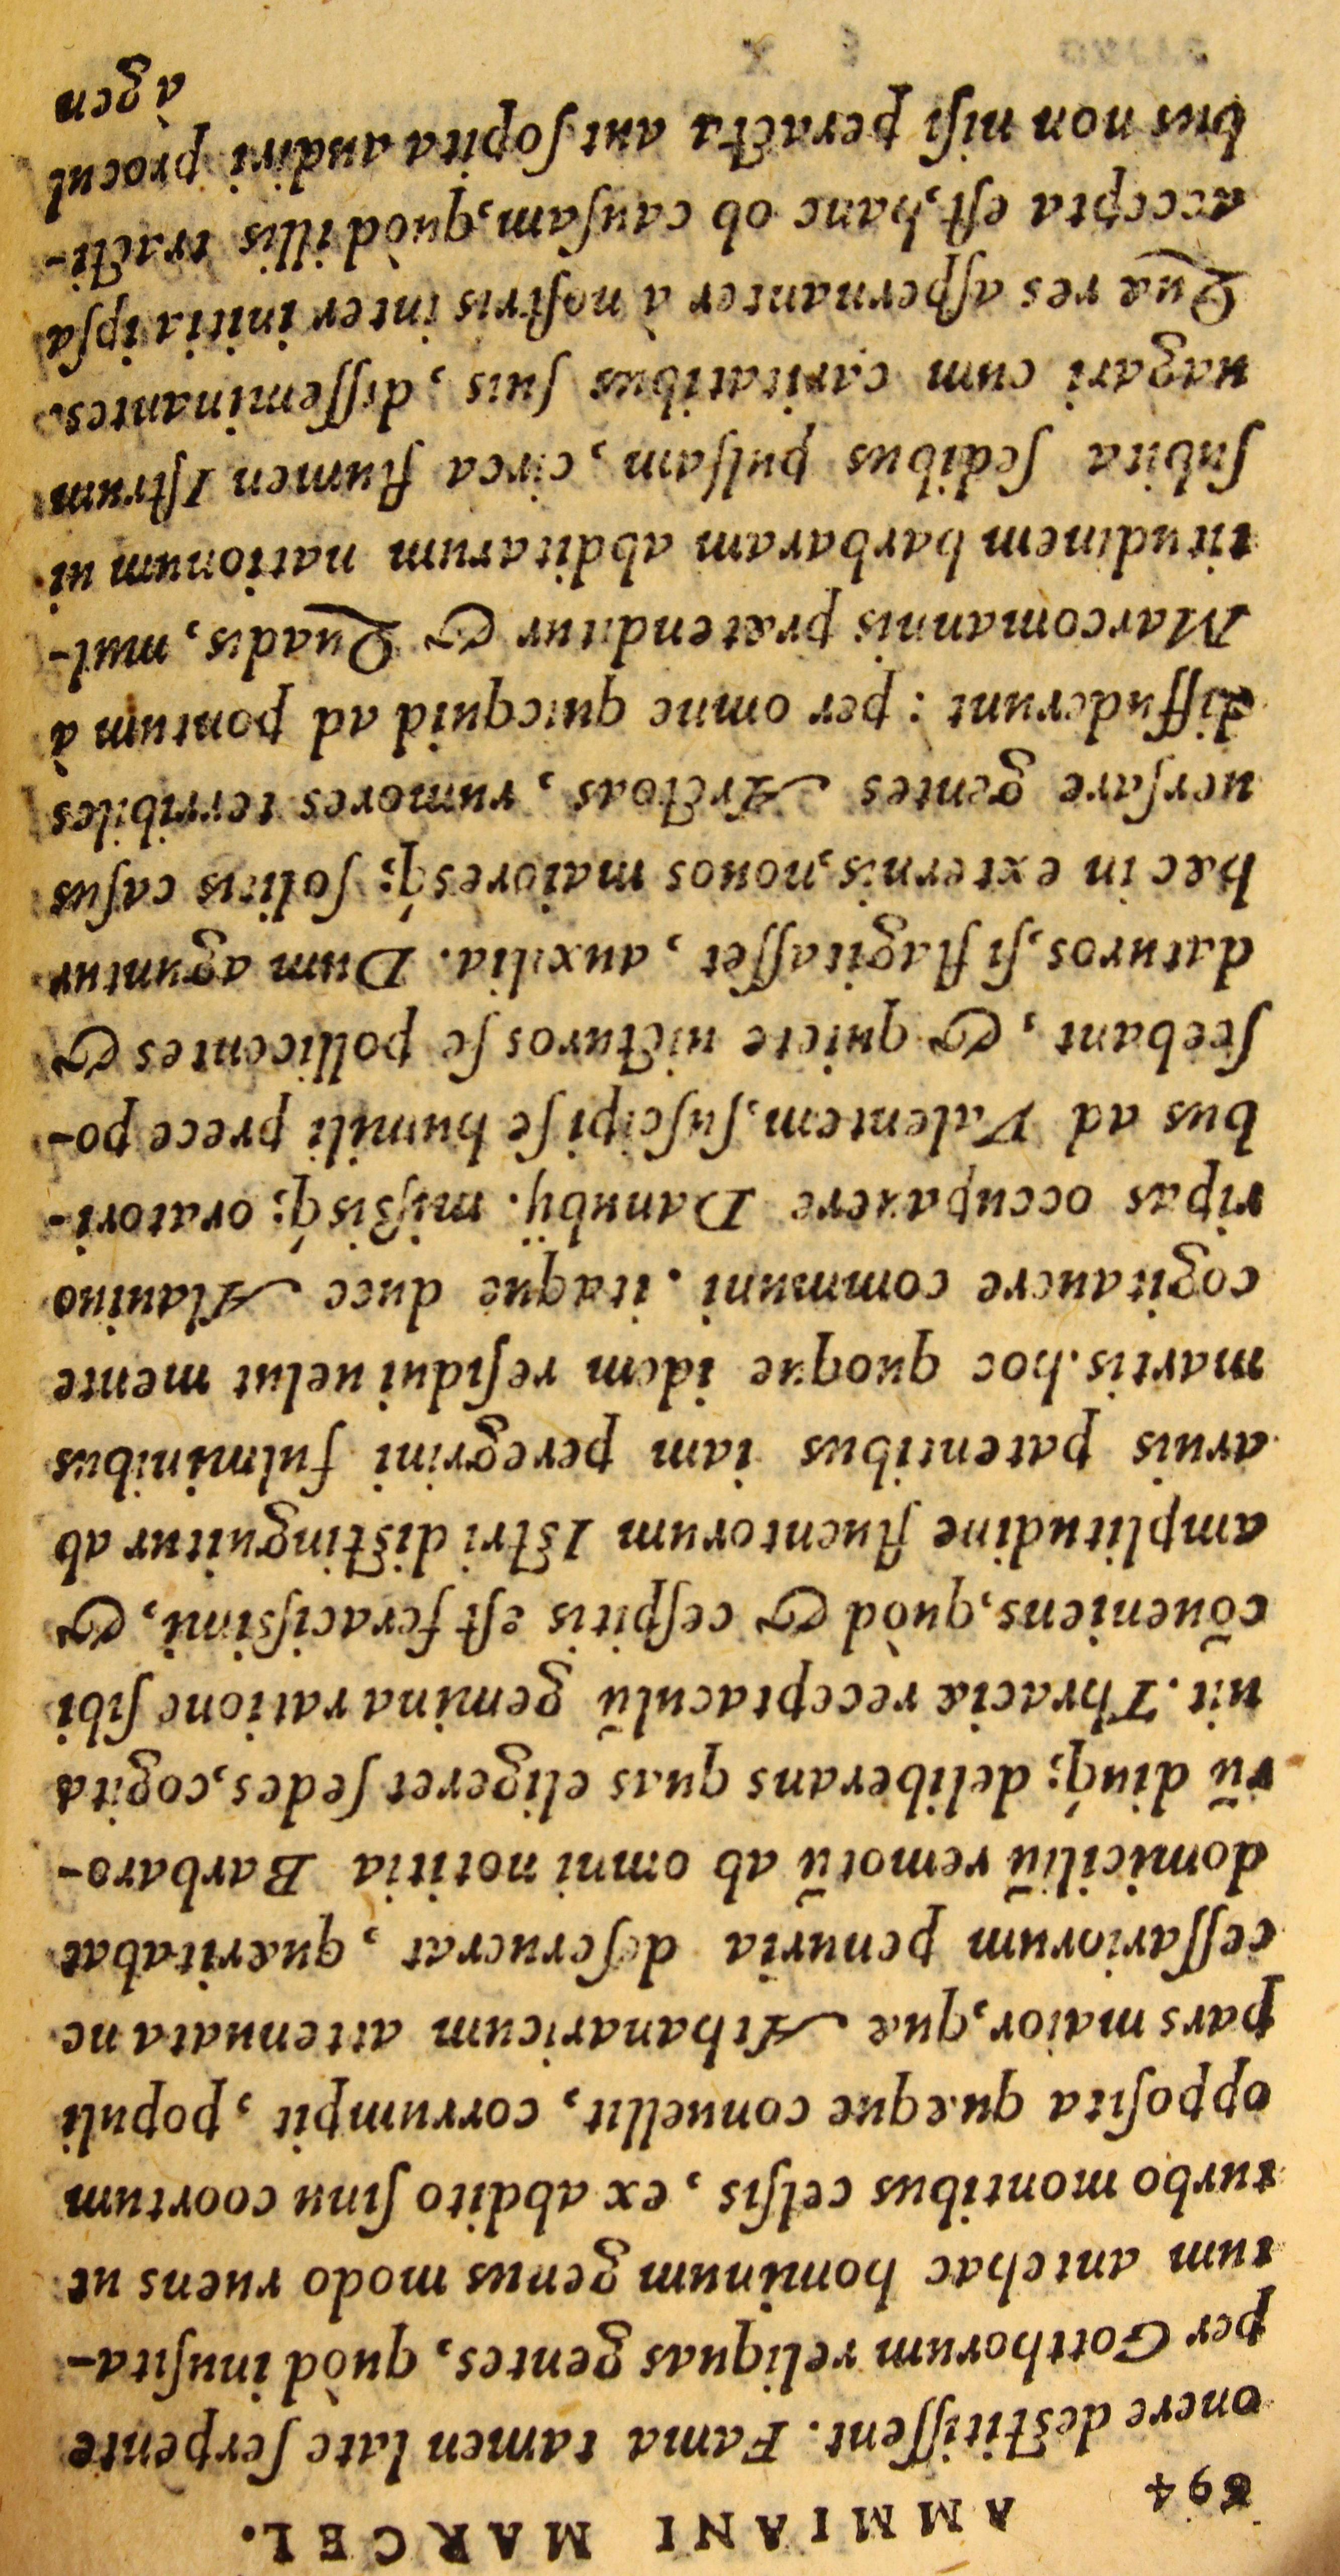 694 AMMIANI MARCEL.
onere deſtitiſſent. Fama tamen late ſerpente
per Gotthorum reliquas gentes, quòd inuſita-
tum antehac hominum genus modo ruens ut
turbo montibus celſis, ex abdito ſinu coortum
oppoſita quæque conuellit, corrumpit, populi
pars maior, quæ Athanaricum attenuata ne
ceſſariorum penuria deſeruerat, quæritabat
domiciliũ remotũ ab omni notitia Barbaro-
rũ diuq́; deliberans quas eligeret ſedes, cogita
uit. Thraciæ receptaculũ gemina ratione ſibi
cõueniens, quòd & ceſpitis eſt feraciſsimi, &
amplitudine fluentorum Iſtri diſtinguitur ab
aruis patentibus iam peregrini fulminibus
martis. hoc quoque idem reſidui uelut mente
cogitauere communi. itaque duce Alauiuo
ripas occupauere Danubÿ. miſsisq́; oratori-
bus ad Valentem, ſuſcipi ſe humili prece po-
ſcebant, & quiete uicturos ſe pollicentes &
daturos, ſi flagitaſſet, auxilia. Dum aguntur
hæc in externis, nouos maioresq́; ſolitis caſus
uerſare gentes Arctoas, rumores terribiles
diffuderunt: per omne quicquid ad pontum à
Marcomannis prætenditur & Quadis, mul-
titudinem barbaram abditarum nationum ui
ſubita ſedibus pulſam, circa flumen Iſtrum
uagari cum caritatibus ſuis, diſſeminantes.
Quæ res aſpernanter à noſtris inter initia ipſa
accepta eſt, hanc ob cauſam, quòd illis tracti-
bus non niſi peracta aut ſopita audiri procul
àgen